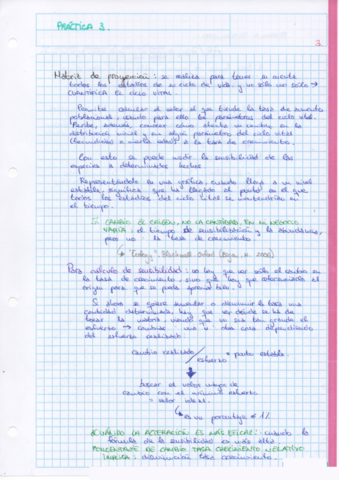 PRÁCTICA 3.
3
Matriz de proyección: se realiza para tener en cuenta
todos los estadios de su ciclo de vida, y no sólo uno solo →
CUANTIFICA EL CICLO VITAL
Permite calcular el valor al que tiende la tasa de
poblacional, usando para ello los parámetros del ciclo vital.
Permite, además, conocer cómo afecta un cambio en la
distribución inicial y en algún parámetro del ciclo vital
(fecundidad a cierta edad) a la tasa de crecimiento.
Con esto se puede medir la sensibilidad de las
especies a determinados
Representándolo en una gráfica, cuando llega a un nivel
estable, significa que ha llegado al punto en el que
todos los estadios del ciclo vital se mantendrán en
el tiempo.
SI CAMBIO EL ORIGEN, NO LA CANTIDAD, EN MI MODELO
VARÍA: el tiempo de estabilización y la
pero no la tasa de crecimiento.
* "Ecology". Blackwell. Oxford 2006)
Para cálculo de sensibilidad: no hay que ver sólo el cambio en
la tasa de crecimiento, sino que hay que
para que se pueda
Si ahora se quiere aumentar o disminuir la tasa una
cantidad determinada, hay que ver dónde se ha de
tocar la matriz, viendo que no sea tan grande el
esfuerzo → cambiar una u otra cosa dependiendo
del esfuerzo realizado
cambio realizado / esfuerzo * punto estable.
buscar el valor
cambio con el mínimo esfuerzo
= valor ideal.
↳ es un porcentaje * 1%
¿CUÁNDO LA ALTERACIÓN ES MÁS EFICAZ?: cuando la
fórmula de la sensibilidad es más alta
PORCENTAJE DE CAMBIO TASA CRECIMIENTO NEGATIVO
INDICA: disminución tasa crecimiento.